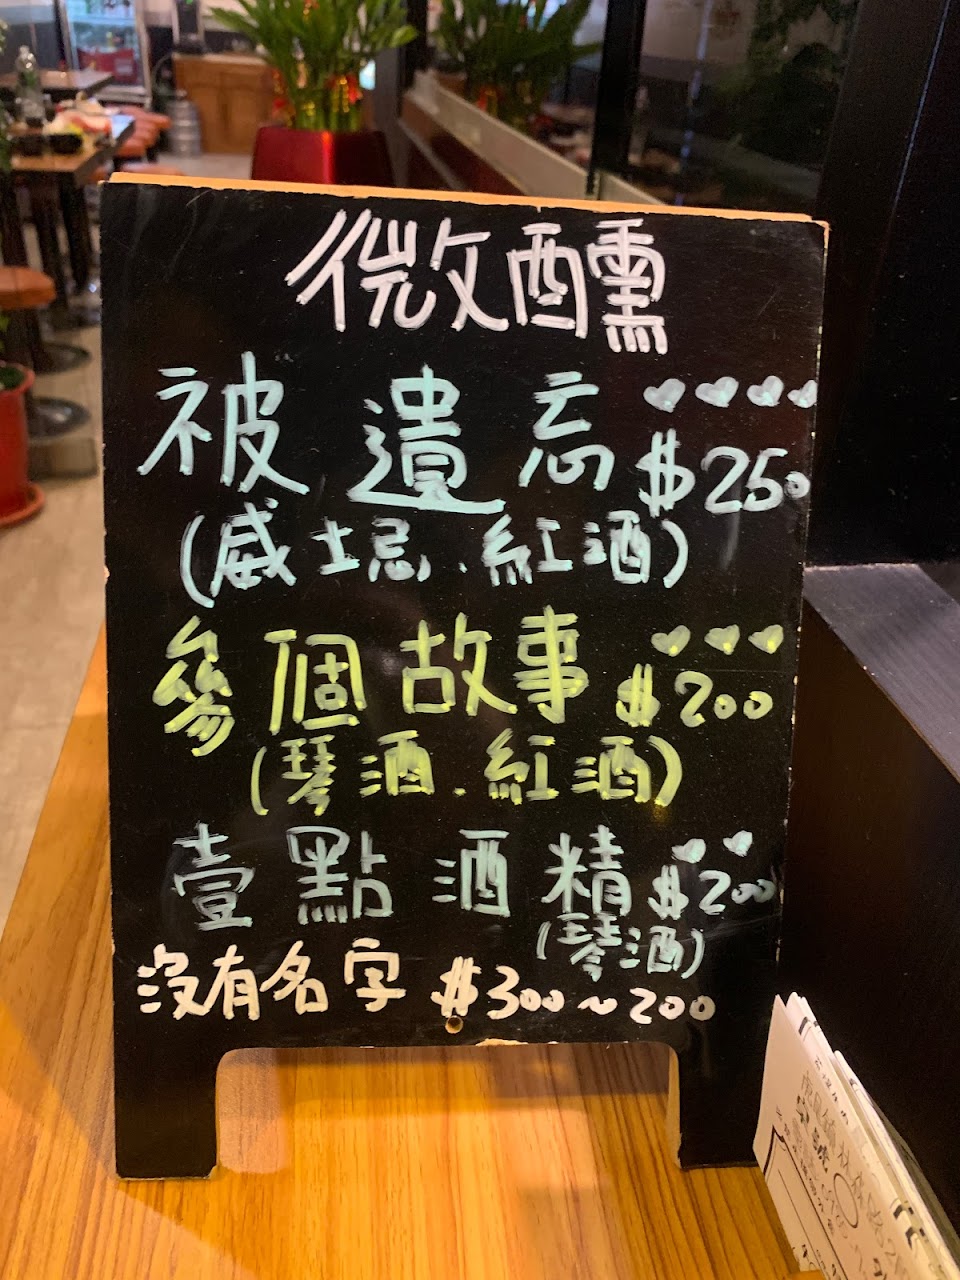 微醺
被遺忘 $250
(威士忌.紅酒)
參個故事 $200
(琴酒.紅酒)
壹點酒精 $200
(琴酒)
沒有名字 $300~200